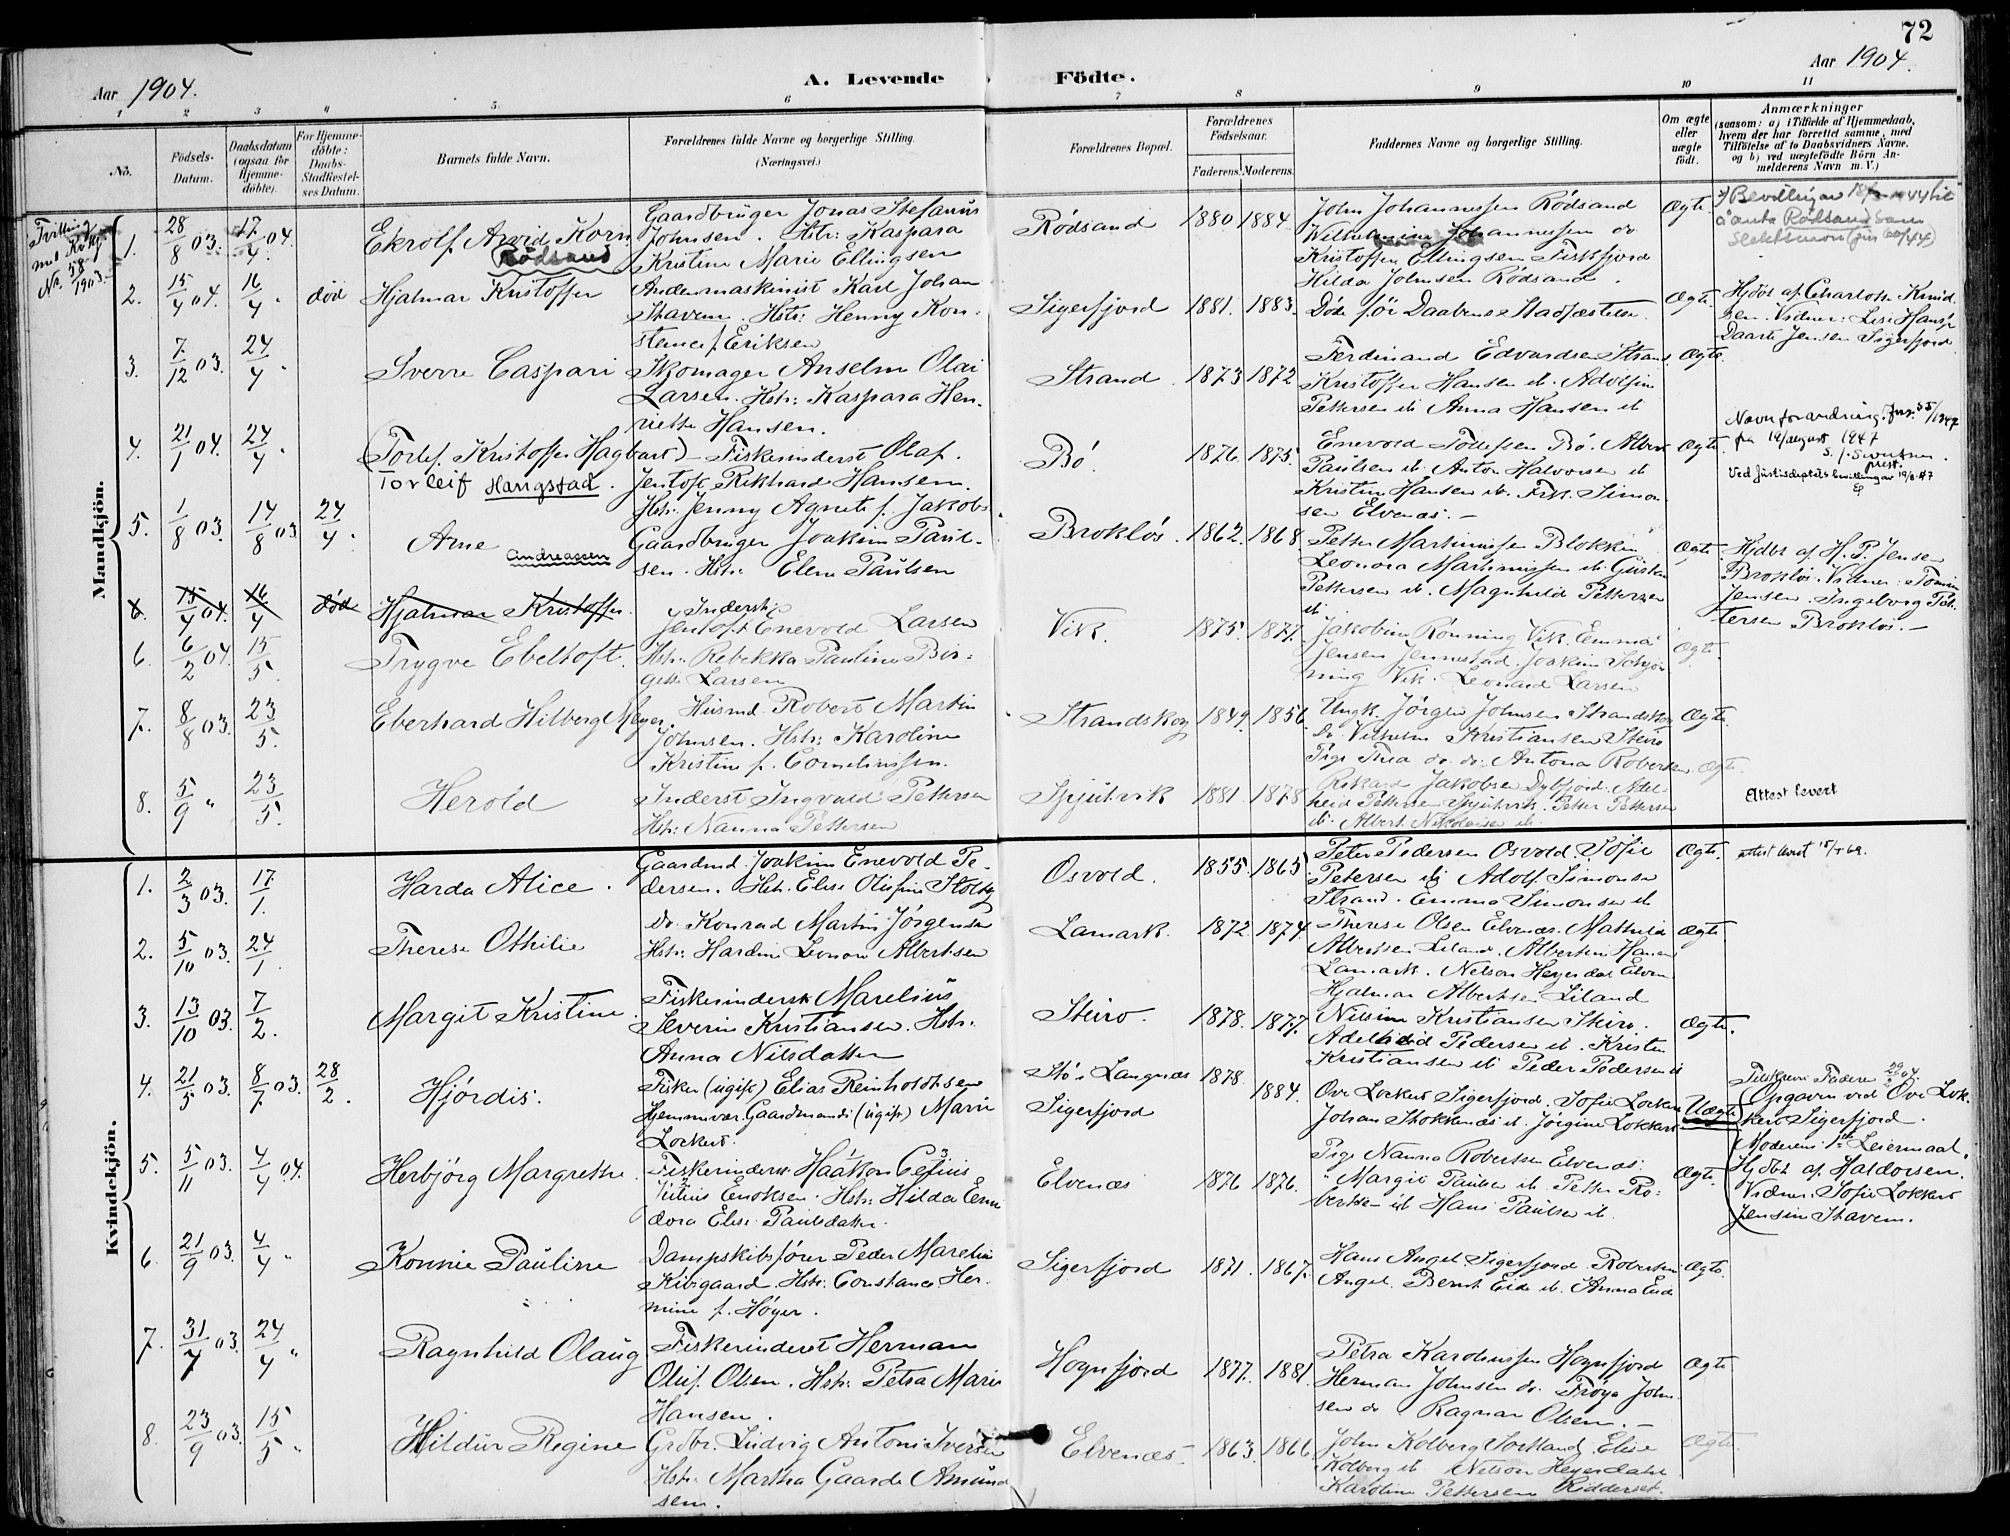 72
Aar 1904.
A. Levende Födte.
Aar 1904.
1 2 3 4 5. 6 7 8 9 10 11
No.
Födsels-
Datum.
Daabsdatum
(ogsaa for
Hjemme-
döbte).
For Hjemme-
döbte:
Daabs-
Stadfæstel-
ses Datum.
Barnets fulde Navn.
Forældrenes fulde Navne og borgerlige Stilling.
(Næringsvei.)
Forældrenes Bopæl.
Forældrenes
Födselsaar.
Faderens. Moderens.
Faddernes Navne og borgerlige Stilling.
Om ægte
eller
uægte
født.
Anmærkninger
(saasom: a) i Tilfælde af Hjemmedaab,
hvem der har forrettet samme, med
Tilföielse af to Daabsvidners Navne,
og b) ved uægtefödte Börn An-
melderens Navn m. V.)
Mandkjön.
Tvilling
med
No. 58
1903.
1. 28/8 03. 17/4 04. Ekrolf Arvid Korn
Rødsand
Gaardbruger Jonas Stefanus
Johnsen. Hstr: Kaspara
Kristine Marie Ellingsen
Rødsand 1880 1884.
John Johannessen Rødsand
Wilhelmine Johannessen do
Kristoffer Ellingsen Fiskfjord
Hilda Johnsen Rødsand.
Ægte
Bevillingav
Rødsand som
2. 15/4 04. 16/4. død Hjalmar Kristoffer
Andenmaskinist Karl Johan
Stavem. Hstr: Henny Kon-
stence f. Eriksen
Sigerfjord 1881. 1883.
Døde før Daabens Stadfæstelse.
Ægte.
Hjdbt af Charlotte Knud-
sen. Vidner: Lise Hansen
Daarte Jensen Sigerfjord
3. 7/12 03. 24/4. Sverre Caspari
Skomager Anselm Olai
Larsen. Hstr: Kaspara Hen-
riette Hansen.
Strand. 1873 1872
Ferdinand Edvardsen Strand
Kristoffer Hansen ib. Adolfine
Pettersen ib Anna Hansen ib
Ægte.
4. 21/1 04. 24/4. (Torlef. Kristoffer Hagbart)
Torleif Haugstad.
Fiskerinderst Olaf.
Jentoft Rikhard Hansen.
Hstr. Jenny Agnete f. Jakobs.
Bö. 1876. 1875.
Enevold Tollefsen Bö. Albert
Paulsen ib. Anton Halvorsen ib
Kristine Hansen ib. Frk. Simon-
sen Elvenæs. -
Ægte.
Navneforandring. Jnr. 35/1947
fra 19/august 1947
prest.
Ved Justisdeptets bevillingav 19/8-47
5. 1/8 03. 14/8 03 24/4. Arne
Andreassen
Gaardbruger Joakim Paul-
sen. Hstr. Elene Paulsen
Brokløs. 1862. 1868
Petter Martinussen Blokken
Leonora Martinussen ib.
Pettersen ib. Magnhild Pettersen
ib.
Ægte.
Hjdbt af H. P. Jensen
Brokløs. Vidner:
Jensen. Ingeborg Pet-
tersen Brokløs. -
6. 15/4 04. 16/4 død Hjalmar Kristoffer.
6. 6/2 04. 15/5. Trygve Ebeltoft.
Inderst
Jentoft Enevold Larsen
Hstr. Rebekka Pauline Bir-
gette Larsen
Vik. 1875. 1877.
Jakobine Rønning Vik. Emma
Jensen Jennestad. Joakim
ning Vik. Leonard Larsen
Ægte.
7. 8/8 03. 23/5. Eberhard Hilberg Meyer.
Husmd. Robert Martin
Johnsen. Hstr: Karoline
Kristine f. Corneliussen.
Strandskog 1849. 1856
Ungk. Jörgen Johnsen Strandskog
Do Vilhelm Kristiansen Steiro
Pige Thea do. do. Antona Robertsen.
Ægte.
Ægte.
8. 5/9 " 23/5. Herold
Inderst Ingvald Pettersen
Hstr: Nanna Pettersen
Spjutvik 1881. 1878
Rikard Jakobsen Dybfjord. Adel-
heid Pettersen Spjutvik. Petter Pettersen
ib. Albert Nikolaisen ib.
Attest levert
Kvindekjön.
1. 2/3 03. 17/1. Harda Alice.
Gaardmd. Joakim Enevold Pe-
dersen. Hstr. Elise Olufine
Osvold. 1855. 1865.
Peter Pedersen Osvold. Sofie
Petersen ib Adolf Simonsen
Strand. Emma Simonsen ib
Ægte.
attest levert 15/5 69.
2. 5/10 03. 24/1. Therese Othilie
Do. Konrad Martin Jörgensen
Hstr. Hardine Leonore Albertsen
Lamark. 1872. 1874.
Therese Olsen Elvenæs. Mathilde
Albertsen Liland. Albertine Hansen
Lamark. Nelson Heyerdal Elven
Hjalmar Albertsen Liland
Ægte.
3. 13/10 03. 7/2. Margit Kristine.
Fiskerinderst Marelius
Severin Kristiansen. Hstr.
Anna Nilsdatter
Steiro. 1878. 1877.
Nilsine Kristiansen Steiro.
Adelheid Pedersen ib. Kristen
Kristiansen ib Peder Pedersen ib
Ægte.
4. 21/5 03. 8/7 03. 28/2. Hjördis.
Fisker (ugift) Elias Reinholdtsen
Hjemmevær. Gaardmandsd. (ugift) Marie
Lockert.
Stö i Langnæs 1878.
Sigerfjord 1884.
Ove Lockert Sigerfjord. Sofie Lockert
Johan Stokkenæs ib. Jørgine Lokkert
Uægte
Opgaven ved Ove Lok-
kert Sigerfjord.
Moderens 1ste Leiermaal.
Hjdbt af Haldorsen.
Vidner. Sofie Lokkert
Jensine Stavem.
5. 5/11 03. 4/4 04. Herbjørg Margrethe.
Fiskerinderst. Haakon Cefius
Julius Enoksen. Hstr. Hilda Een
dora Elise Paulsdatter.
Elvenæs 1876 1876.
Pige Nanna Robertsen Elvenæs.
" Margit Paulsen ib. Petter Ro-
bertsen ib Hans Paulsen ib.
Ægte.
6. 21/9 03. 4/4 " Konnie Pauline
Dampskibsfører Peder Marelius
Kirgaard. Hstr: Constance Her-
mine f. Høyer.
Sigerfjord 1871. 1867.
Hans Angel Sigerfjord. Robertine
Angel. Bernt Eide ib. Anna Eide
Ægte.
7. 31/7 03. 24/4 " Ragnhild Olaug
Fiskerinderst Herman
Oluf. Olsen. Hstr: Petra Marie
Hansen.
Hognfjord 1877. 1881.
Petra Karoliussen Hognfjord
Herman Johnsen do. Frøya John-
sen do Ragnar Olsen. -
Ægte
8. 23/9 03. 15/5 " Hildur Regine
Grdbr. Ludvig Antoni Iversen
Hstr: Martha Gaarde Amund
sen.
Elvenæs. 1863. 1866.
John Kolberg Sortland. Elise
Kolberg ib. Nelson Heyerdahl
Karoline Pettersen Ridderset.
Ægte.